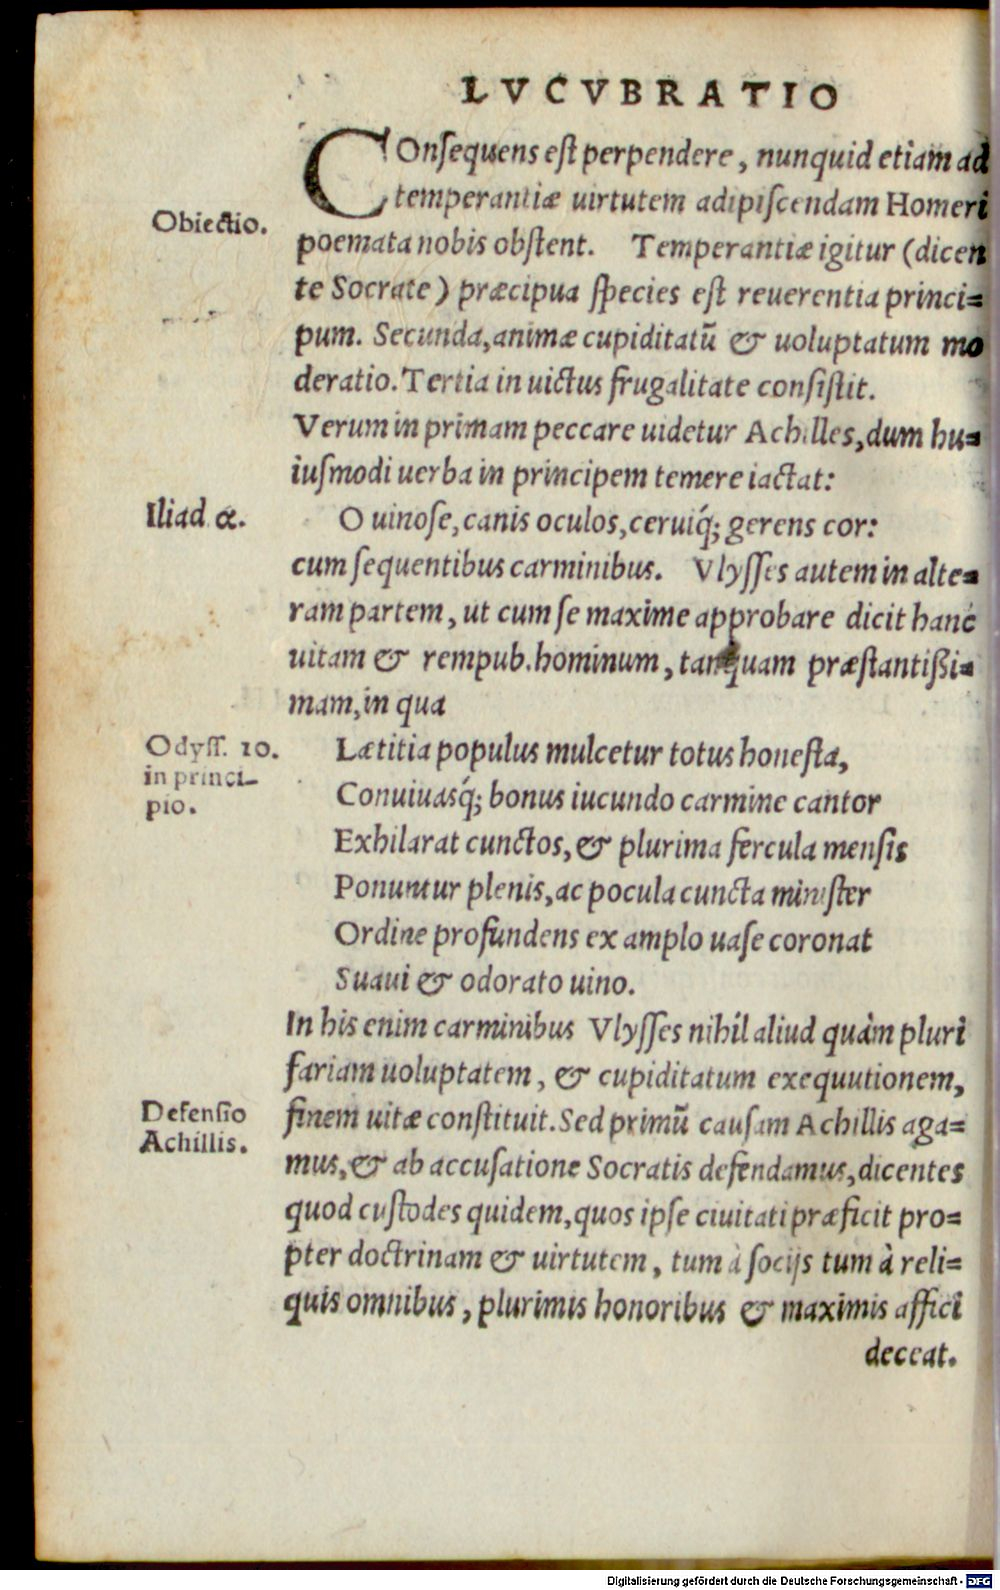 LVCVBRATIO
COnſequens eſt perpendere, nunquid etiam ad
temperantiæ uirtutem adipiſcendam Homeri
Obiectio.
poemata nobis obſtent. Temperantiæ igitur (dicen
te Socrate) præcipua ſpecies eſt reuerentia princi=
pum. Secunda, animæ cupiditatū & uoluptatum mo
deratio. Tertia in uictus frugalitate conſiſtit.
Verum in primam peccare uidetur Achilles, dum hu=
iuſmodi uerba in principem temere iactat:
Iliad α.
O uinoſe, canis oculos, ceruiq́; gerens cor:
cum ſequentibus carminibus. Vlyſſes autem in alte=
ram partem, ut cum ſe maxime approbare dicit hanc
uitam & rempub. hominum, tanquam præſtantißi=
mam, in qua
Odyſſ. 10.
in princi-
pio.
Lætitia populus mulcetur totus honeſta,
Conuiuasq́; bonus iucundo carmine cantor
Exhilarat cunctos, & plurima fercula menſis
Ponuntur plenis, ac pocula cuncta miniſter
Ordine profundens ex amplo uaſe coronat
Suaui & odorato uino.
In his enim carminibus Vlyſſes nihil aliud quàm pluri
fariam uoluptatem, & cupiditatum exequutionem,
Defenſio
Achillis.
finem uitæ conſtituit. Sed primū cauſam Achillis aga=
mus, & ab accuſatione Socratis defendamus, dicentes
quod cuſtodes quidem, quos ipſe ciuitati præficit pro=
pter doctrinam & uirtutem, tum à ſocijs tum à reli=
quis omnibus, plurimis honoribus & maximis affici
deceat.
Digitalisierung gefördert durch die Deutsche Forschungsgemeinschaft - DFG